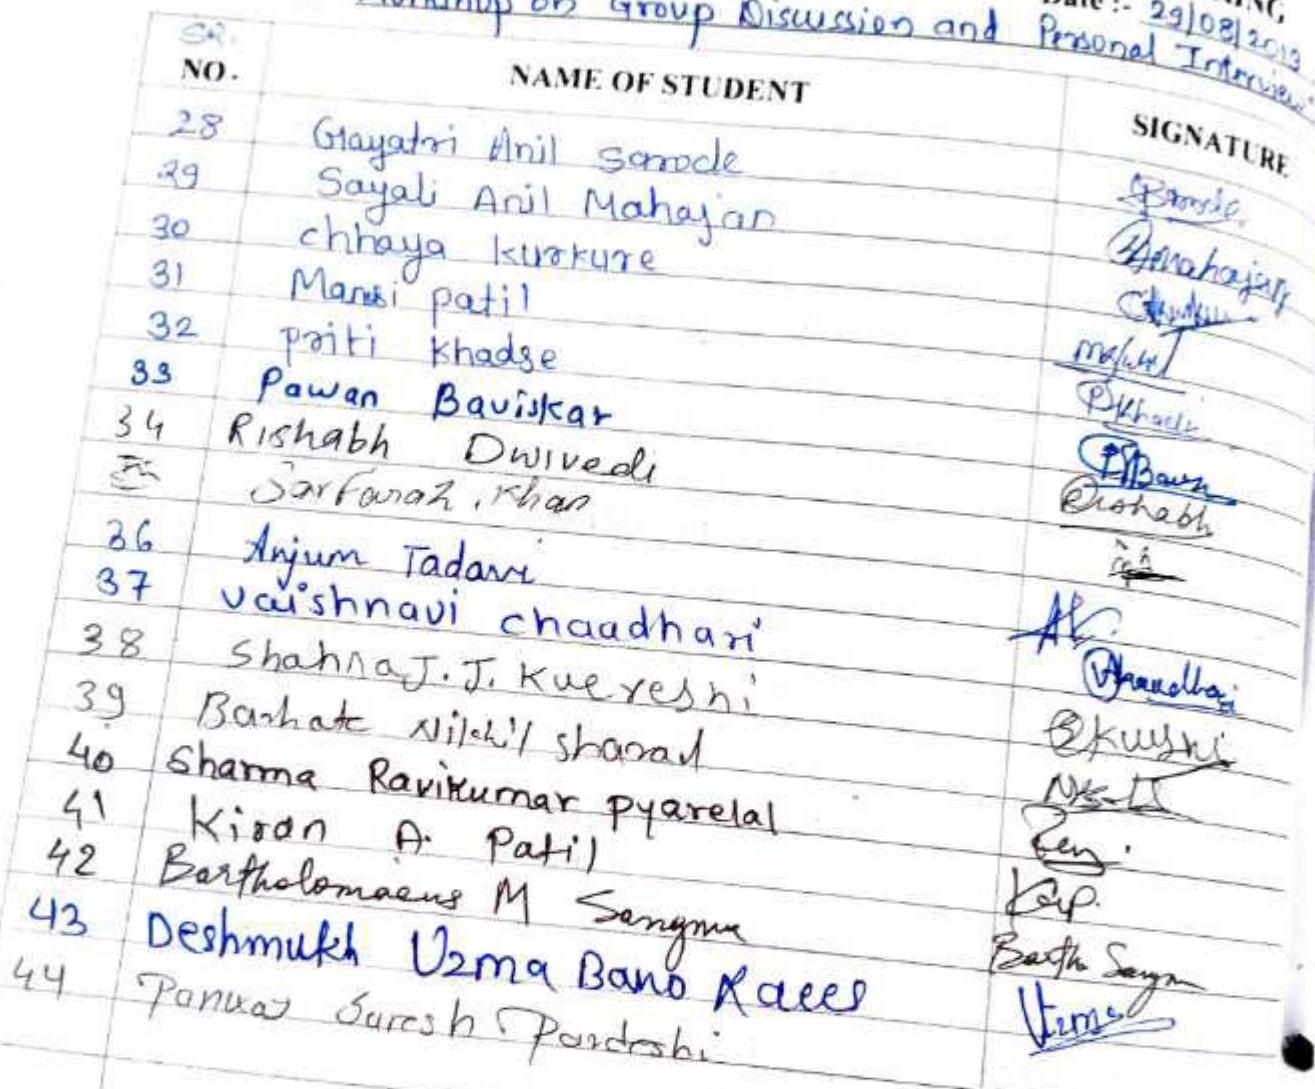 NING
Date :- 29/08/2019
Workshop on Group Discussion and Personal Interview
SR. NO. NAME OF STUDENT SIGNATURE
28 Gayatri Anil Sarode
29 Sayali Anil Mahajan
30 chhaya kurkure
31 Mansi patil
32 priti khadse
33 Pawan Baviskar
34 Rishabh Dwivedi Rishabh
Sarfaraz . Khan
36 Anjum Tadavi
37 vaishnavi chaadhari
38 Shahna J. J. Kuereshi
39 Barhate Nikhil sharad
40 Sharma Ravikumar pyarelal
41 Kiran A. Patil
42 Bartholomaeus M Sangma Bartho Sangma
43 Deshmukh Uzma Bano Raees Uzma
44 Panwar Suresh Pardeshi